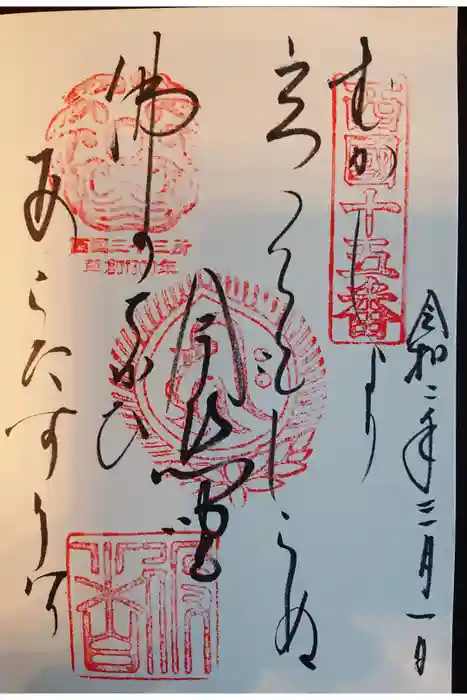 令和二年三月一日
西國十五番
むかしより
立つともしらぬ
佛のちかひ
あらたなりけり
西国三十三所
草創1300年